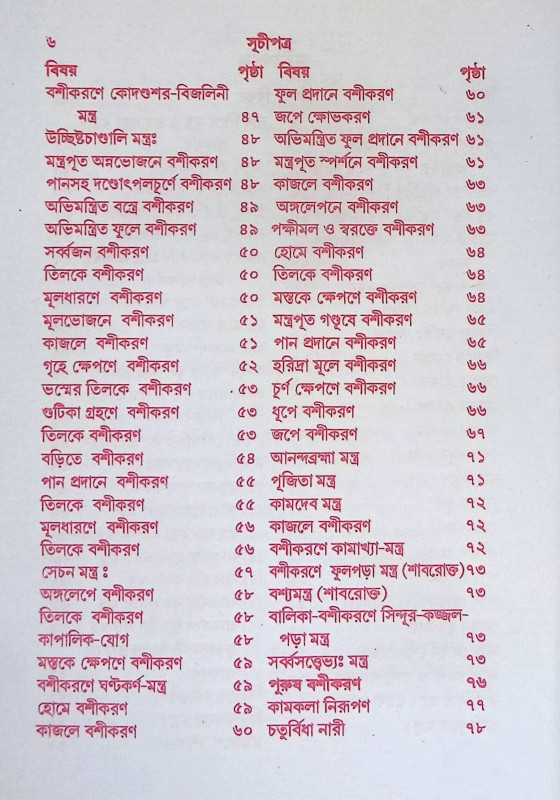 ৬
সূচীপত্র
বিষয় পৃষ্ঠা
বশীকরণে কোদণ্ডশর-বিজলিনী
মন্ত্র ৪৭
উচ্ছিষ্টচাণ্ডালি মন্ত্রঃ ৪৮
মন্ত্রপূত অন্নভোজনে বশীকরণ ৪৮
পানসহ দণ্ডোৎপলচূর্ণে বশীকরণ ৪৮
অভিমন্ত্রিত বস্ত্রে বশীকরণ ৪৯
অভিমন্ত্রিত ফুলে বশীকরণ ৪৯
সর্ব্বজন বশীকরণ ৫০
তিলকে বশীকরণ ৫০
মূলধারণে বশীকরণ ৫০
মূলভোজনে বশীকরণ ৫১
কাজলে বশীকরণ ৫১
গৃহে ক্ষেপণে বশীকরণ ৫২
ভস্মের তিলকে বশীকরণ ৫৩
গুটিকা গ্রহণে বশীকরণ ৫৩
তিলকে বশীকরণ ৫৩
বড়িতে বশীকরণ ৫৪
পান প্রদানে বশীকরণ ৫৫
তিলকে বশীকরণ ৫৫
মূলধারণে বশীকরণ ৫৬
তিলকে বশীকরণ ৫৬
সেচন মন্ত্র ঃ ৫৭
অঙ্গলেপে বশীকরণ ৫৮
তিলকে বশীকরণ ৫৮
কাপালিক-যোগ ৫৮
মস্তকে ক্ষেপণে বশীকরণ ৫৯
বশীকরণে ঘণ্টকর্ণ-মন্ত্র ৫৯
হোমে বশীকরণ ৫৯
কাজলে বশীকরণ ৬০
বিষয় পৃষ্ঠা
ফুল প্রদানে বশীকরণ ৬০
জপে ক্ষোভকরণ ৬১
অভিমন্ত্রিত ফুল প্রদানে বশীকরণ ৬১
মন্ত্রপূত স্পর্শনে বশীকরণ ৬১
কাজলে বশীকরণ ৬৩
অঙ্গলেপনে বশীকরণ ৬৩
পক্ষীমল ও স্বরক্তে বশীকরণ ৬৩
হোমে বশীকরণ ৬৪
তিলকে বশীকরণ ৬৪
মস্তকে ক্ষেপণে বশীকরণ ৬৪
মন্ত্রপূত গণ্ডূষে বশীকরণ ৬৫
পান প্রদানে বশীকরণ ৬৫
হরিদ্রা মূলে বশীকরণ ৬৬
চূর্ণ ক্ষেপণে বশীকরণ ৬৬
ধূপে বশীকরণ ৬৬
জপে বশীকরণ ৬৭
আনন্দব্রহ্মা মন্ত্র ৭১
পূজিতা মন্ত্র ৭১
কামদেব মন্ত্র ৭২
কাজলে বশীকরণ ৭২
বশীকরণে কামাখ্যা-মন্ত্র ৭২
বশীকরণে ফুলপড়া মন্ত্র (শাবরোক্ত) ৭৩
বশ্যমন্ত্র (শাবরোক্ত) ৭৩
বালিকা-বশীকরণে সিন্দূর-কজ্জল-
পড়া মন্ত্র ৭৩
সর্ব্বসত্ত্বেভ্যঃ মন্ত্র ৭৩
পুরুষ বশীকরণ ৭৬
কামকলা নিরূপণ ৭৭
চতুর্বিধা নারী ৭৮